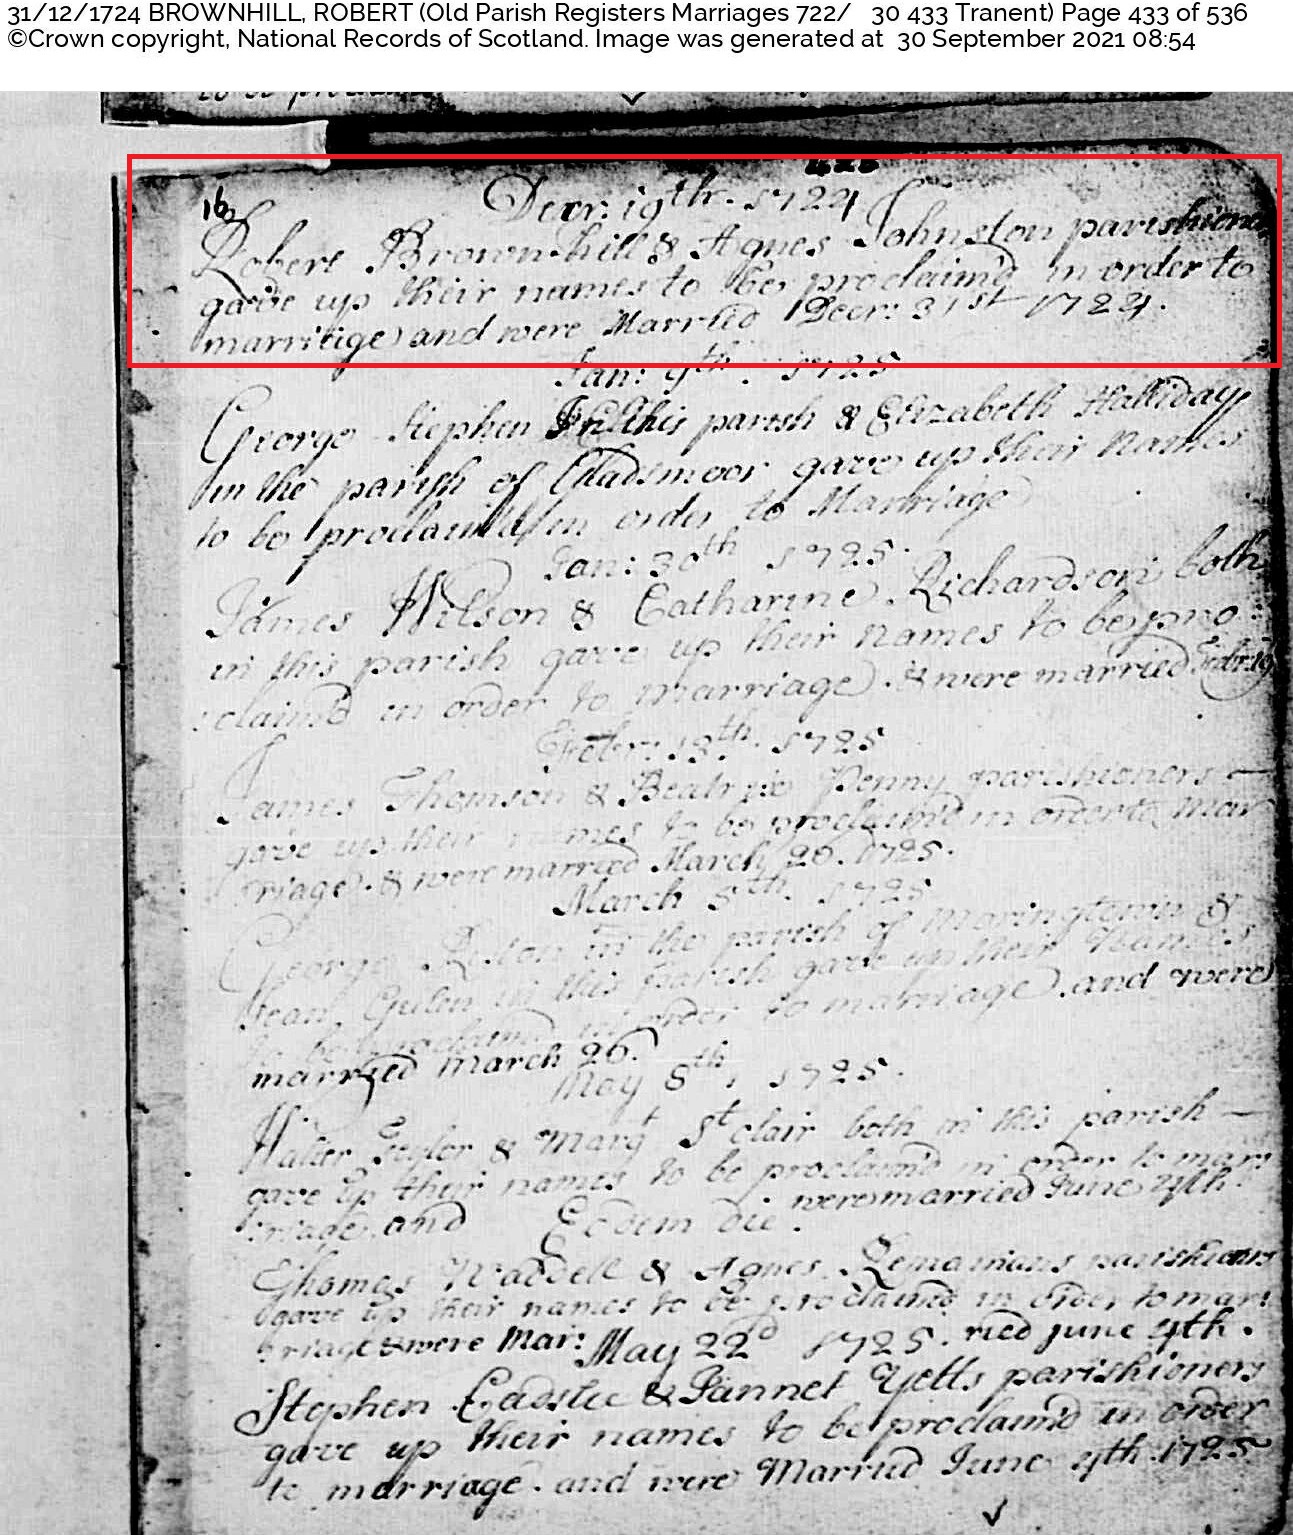 31/12/1724 BROWNHILL, ROBERT (Old Parish Registers Marriages 722/ 30 433 Tranent) Page 433 of 536
©Crown copyright, National Records of Scotland. Image was generated at 30 September 2021 08:54
Decr: 19th. 1724
Robert Brownhill & Agnes Johnston parishioners
gave up their names to be proclaim'd in order to
marriage and were Married Decr: 31st 1724.
Jan: 9th. 1725
George Stephen in this parish & Elizabeth Halliday
in the parish of Gladsmoor gave up their names
to be proclaim'd in order to Marriage
Jan: 30th 1725.
James Wilson & Catharine Richardson both
in this parish gave up their names to be pro
claim'd in order to marriage. & were married
Febr: 13th. 1725
James Thomson & Beatrix Penny parishioners —
gave up their names to be proclaim'd in order to mar
riage. & were married March 26. 1725.
March 5th. 1725
George in the parish of &
Jean in this parish gave up their names
to be proclaim'd in order to marriage. and were
married March 26.
May 8th, 1725.
Walter Teylor & Margt St clair both in this parish —
gave up their names to be proclaim'd in order to mar
riage. and were married June 4th.
Eodem die.
Thomas Waddell & Agnes parishioners
gave up their names to be proclaimed in order to mar
riage & were Mar: ried June 4th.
May 22d 1725.
Stephen Cadslie & Jannet Yetts parishioners
gave up their names to be proclaim'd in order
to marriage. and were Married June 4th 1725